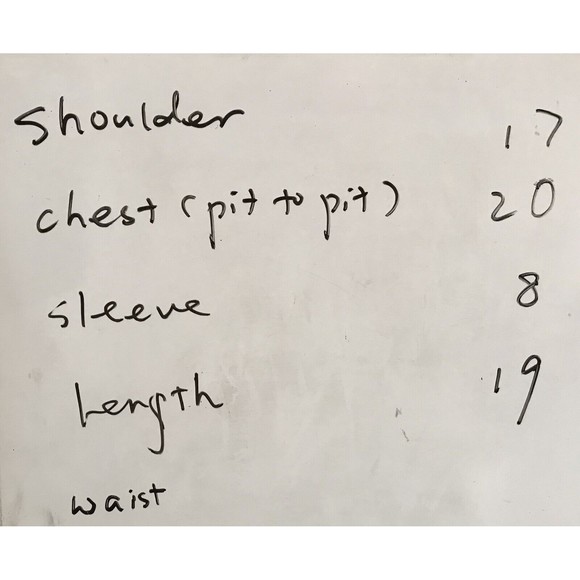 shoulder 17
chest (pit to pit) 20
sleeve 8
Length 19
waist